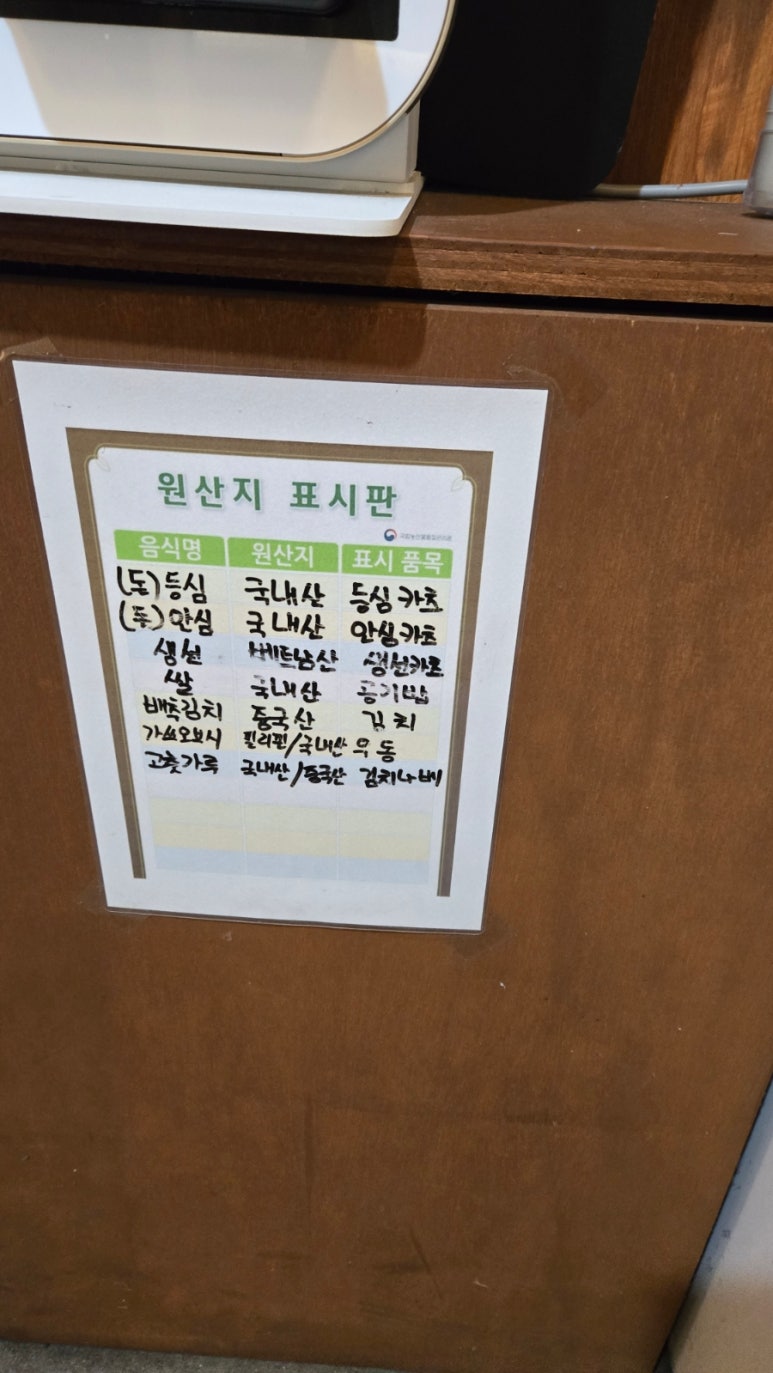 원산지 표시판
국립농산물품질관리원
음식명 원산지 표시 품목
(돈)등심 국내산 등심카츠
(돈)안심 국내산 안심카츠
생선 베트남산 생선카츠
쌀 국내산 공기밥
배추김치 중국산 김치
가쓰오보시 필리핀/국내산 우동
고춧가루 국내산/중국산 김치나베